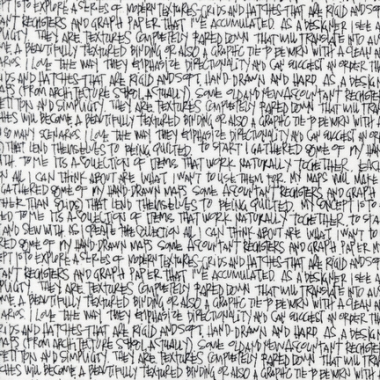 IS TO EXPLORE A SERIES OF MODERN TEXTURES-GRIDS AND HATCHES-THAT ARE RIGID AND SOFT
RECHISTERS AND GRAPH PAPER THAT I'VE ACCUMULATED AS A DESIGNER I SEE
SIMPLICITY THEY ARE TEXTURES COMPLETELY PARED DOWN THAT WILL TRANSLATE INTO
A BEAUTIFULLY TEXTURED BINDING OR ALSO A GRAPHIC TIE TO BE WORN WITH A CLEAN
I LOVE THE WAY THEY EMPHASIZE DIRECTIONALITY AND CAN SUGGEST AN ORDER
AND HATCHES-THAT ARE RIGID AND SOFT, HAND-DRAWN AND HARD. AS A DESIGNER
MAPS (FROM ARCHITECTURE SCHOOL, ACTUALLY) SOME OLD AND NEW ACCOUNTANT RECHISTERS
AND SIMPLICITY. THEY ARE TEXTURES COMPLETELY PARED DOWN THAT WILL
WILL BECOME A BEAUTIFULLY TEXTURED BINDING OR ALSO A GRAPHIC TIE TO BE WORN WITH
SO MANY SCENARIOS I LOVE THE WAY THEY EMPHASIZE DIRECTIONALITY AND CAN SUGGEST AN
THAT LEND THEMSELVES TO BEING QUILTED. TO START I GATHERED SOME OF MY HAND DRAWN
TO ME ITS A COLLECTION OF ITEMS THAT WORK NATURALLY TOGETHER
ALL I CAN THINK ABOUT ARE WHAT I WANT TO USE THEM FOR. MY MAPS WILL MAKE
GATHERED SOME OF MY HAND DRAWN MAPS SOME ACCOUNTANT RECHISTERS AND GRAPH
THAN SOLIDS) THAT LEND THEMSELVES TO BEING QUILTED. MY CONCEPT IS TO
TO ME ITS A COLLECTION OF ITEMS THAT WORK NATURALLY TOGETHER. TO
AND SEW WITH AS I CREATE THE COLLECTION ALL I CAN THINK ABOUT ARE WHAT I WANT TO
SOME OF MY HAND-DRAWN MAPS SOME ACCOUNTANT RECHISTERS AND GRAPH PAPER
IS TO EXPLORE A SERIES OF MODERN TEXTURES-GRIDS AND HATCHES-THAT ARE RIGID AND SOFT
RECHISTERS AND GRAPH PAPER THAT I'VE ACCUMULATED AS A DESIGNER I SEE
SIMPLICITY THEY ARE TEXTURES COMPLETELY PARED DOWN THAT WILL TRANSLATE INTO
A BEAUTIFULLY TEXTURED BINDING OR ALSO A GRAPHIC TIE TO BE WORN WITH A CLEAN
I LOVE THE WAY THEY EMPHASIZE DIRECTIONALITY AND CAN SUGGEST AN ORDER
AND HATCHES-THAT ARE RIGID AND SOFT, HAND-DRAWN AND HARD. AS A DESIGNER
MAPS (FROM ARCHITECTURE SCHOOL, ACTUALLY) SOME OLD AND NEW ACCOUNTANT RECHISTERS
AND SIMPLICITY. THEY ARE TEXTURES COMPLETELY PARED DOWN THAT WILL
WILL BECOME A BEAUTIFULLY TEXTURED BINDING OR ALSO A GRAPHIC TIE TO BE WORN WITH